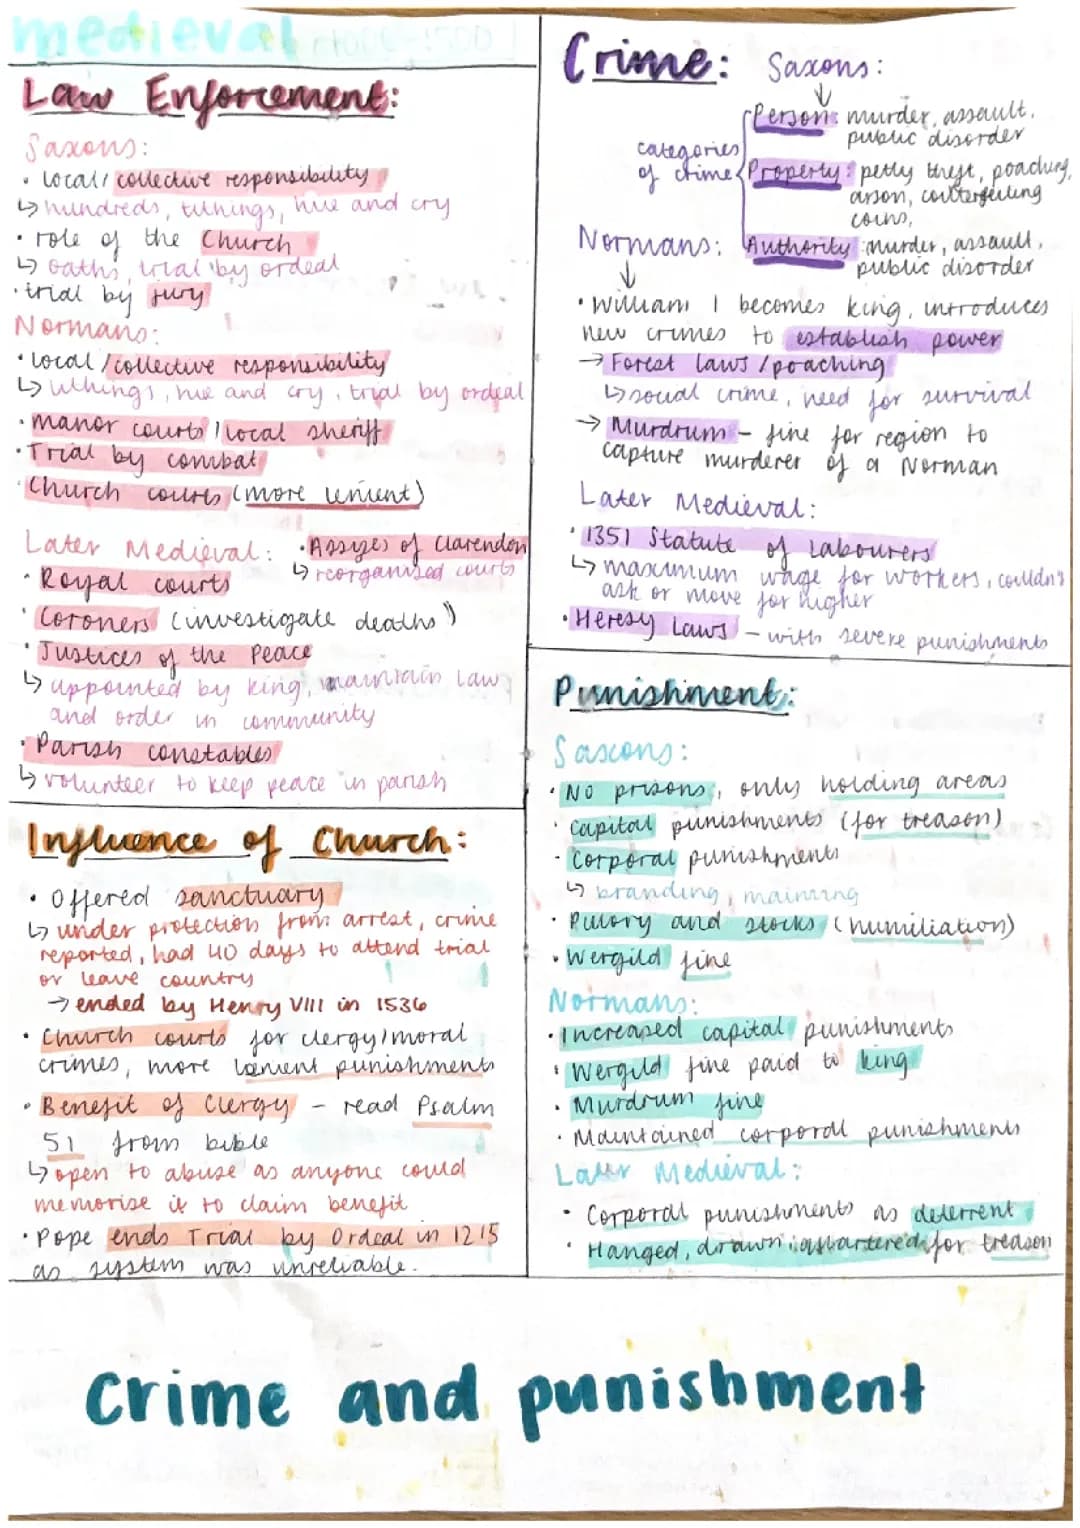 medieval [1000-1500]
Law Enforcement:
Saxons:
• local/collective responsibility
↳ hundreds, tithings, hue and cry
• role of the Church
↳ oaths, trial by ordeal
• trial by jury
Normans:
• local/collective responsibility
↳ tithings, hue and cry, trial by ordeal
• manor courts/local sheriff
• Trial by combat
• Church courts (more lenient)
Later Medieval:
• Assizes of Clarendon
↳ reorganised courts
• Royal courts
• Coroners (investigate deaths)
• Justices of the Peace
↳ appointed by king, maintain law
and order in community
• Parish constables
↳ volunteer to keep peace in parish
Influence of Church:
• Offered sanctuary
↳ under protection from arrest, crime
reported, had 40 days to attend trial
or leave country
→ ended by Henry VIII in 1536
• Church courts for clergy/moral
crimes, more lenient punishments
• Benefit of Clergy – read Psalm
51 from bible
↳ open to abuse as anyone could
memorise it to claim benefit
• Pope ends Trial by Ordeal in 1215
as system was unreliable.
Crime: Saxons:
↓
categories
of crime
Person: murder, assault,
public disorder
Property: petty theft, poaching,
arson, counterfeiting
coins,
Authority: murder, assault,
public disorder
Normans:
↓
• William I becomes king, introduces
new crimes to establish power
→ Forest laws/poaching
↳ social crime, need for survival
→ Murdrum – fine for region to
capture murderer of a Norman
Later Medieval:
• 1351 Statute of Labourers
↳ maximum wage for workers, couldn't
ask or move for higher
• Heresy Laws – with severe punishments
Punishment:
Saxons:
• No prisons, only holding areas
• Capital punishments (for treason)
• Corporal punishments
↳ branding, maiming
• Pillory and stocks (humiliation)
• Wergild fine
Normans:
• Increased capital punishments
• Wergild fine paid to king
• Murdrum fine
• Maintained corporal punishments
Later Medieval:
• Corporal punishments as deterrent
• Hanged, drawn, quartered for treason
crime and punishment